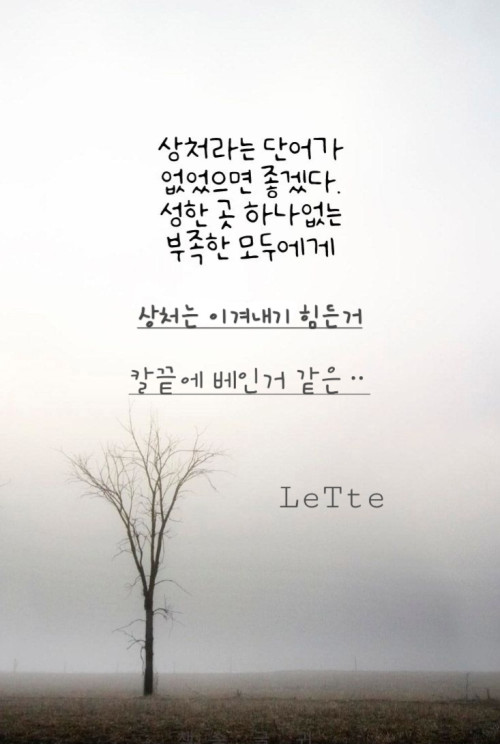 상처라는 단어가
없었으면 좋겠다.
성한 곳 하나없는
부족한 모두에게
상처는 이겨내기 힘든거
칼끝에 베인거 같은··
LeTte